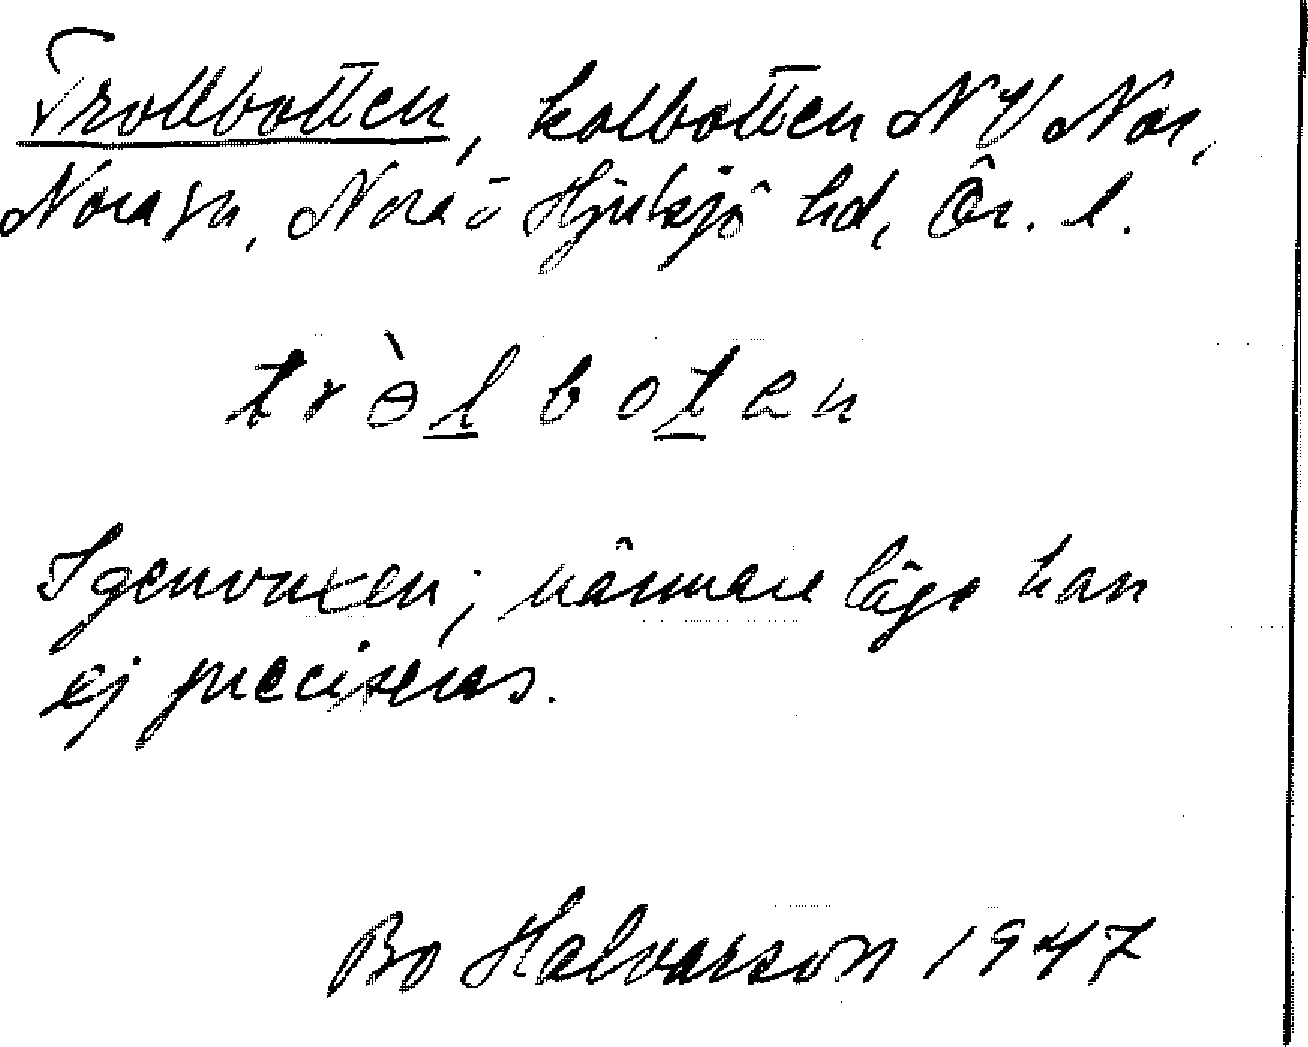 Trollbotten, kolbotten NV Nor,
Nora sn, Nora o Hjulsjö hd, Ör. l.
trɵ̀l boten
Igenvuxen; närmare läge kan
ej preciseras.
Bo Halvarson 1947